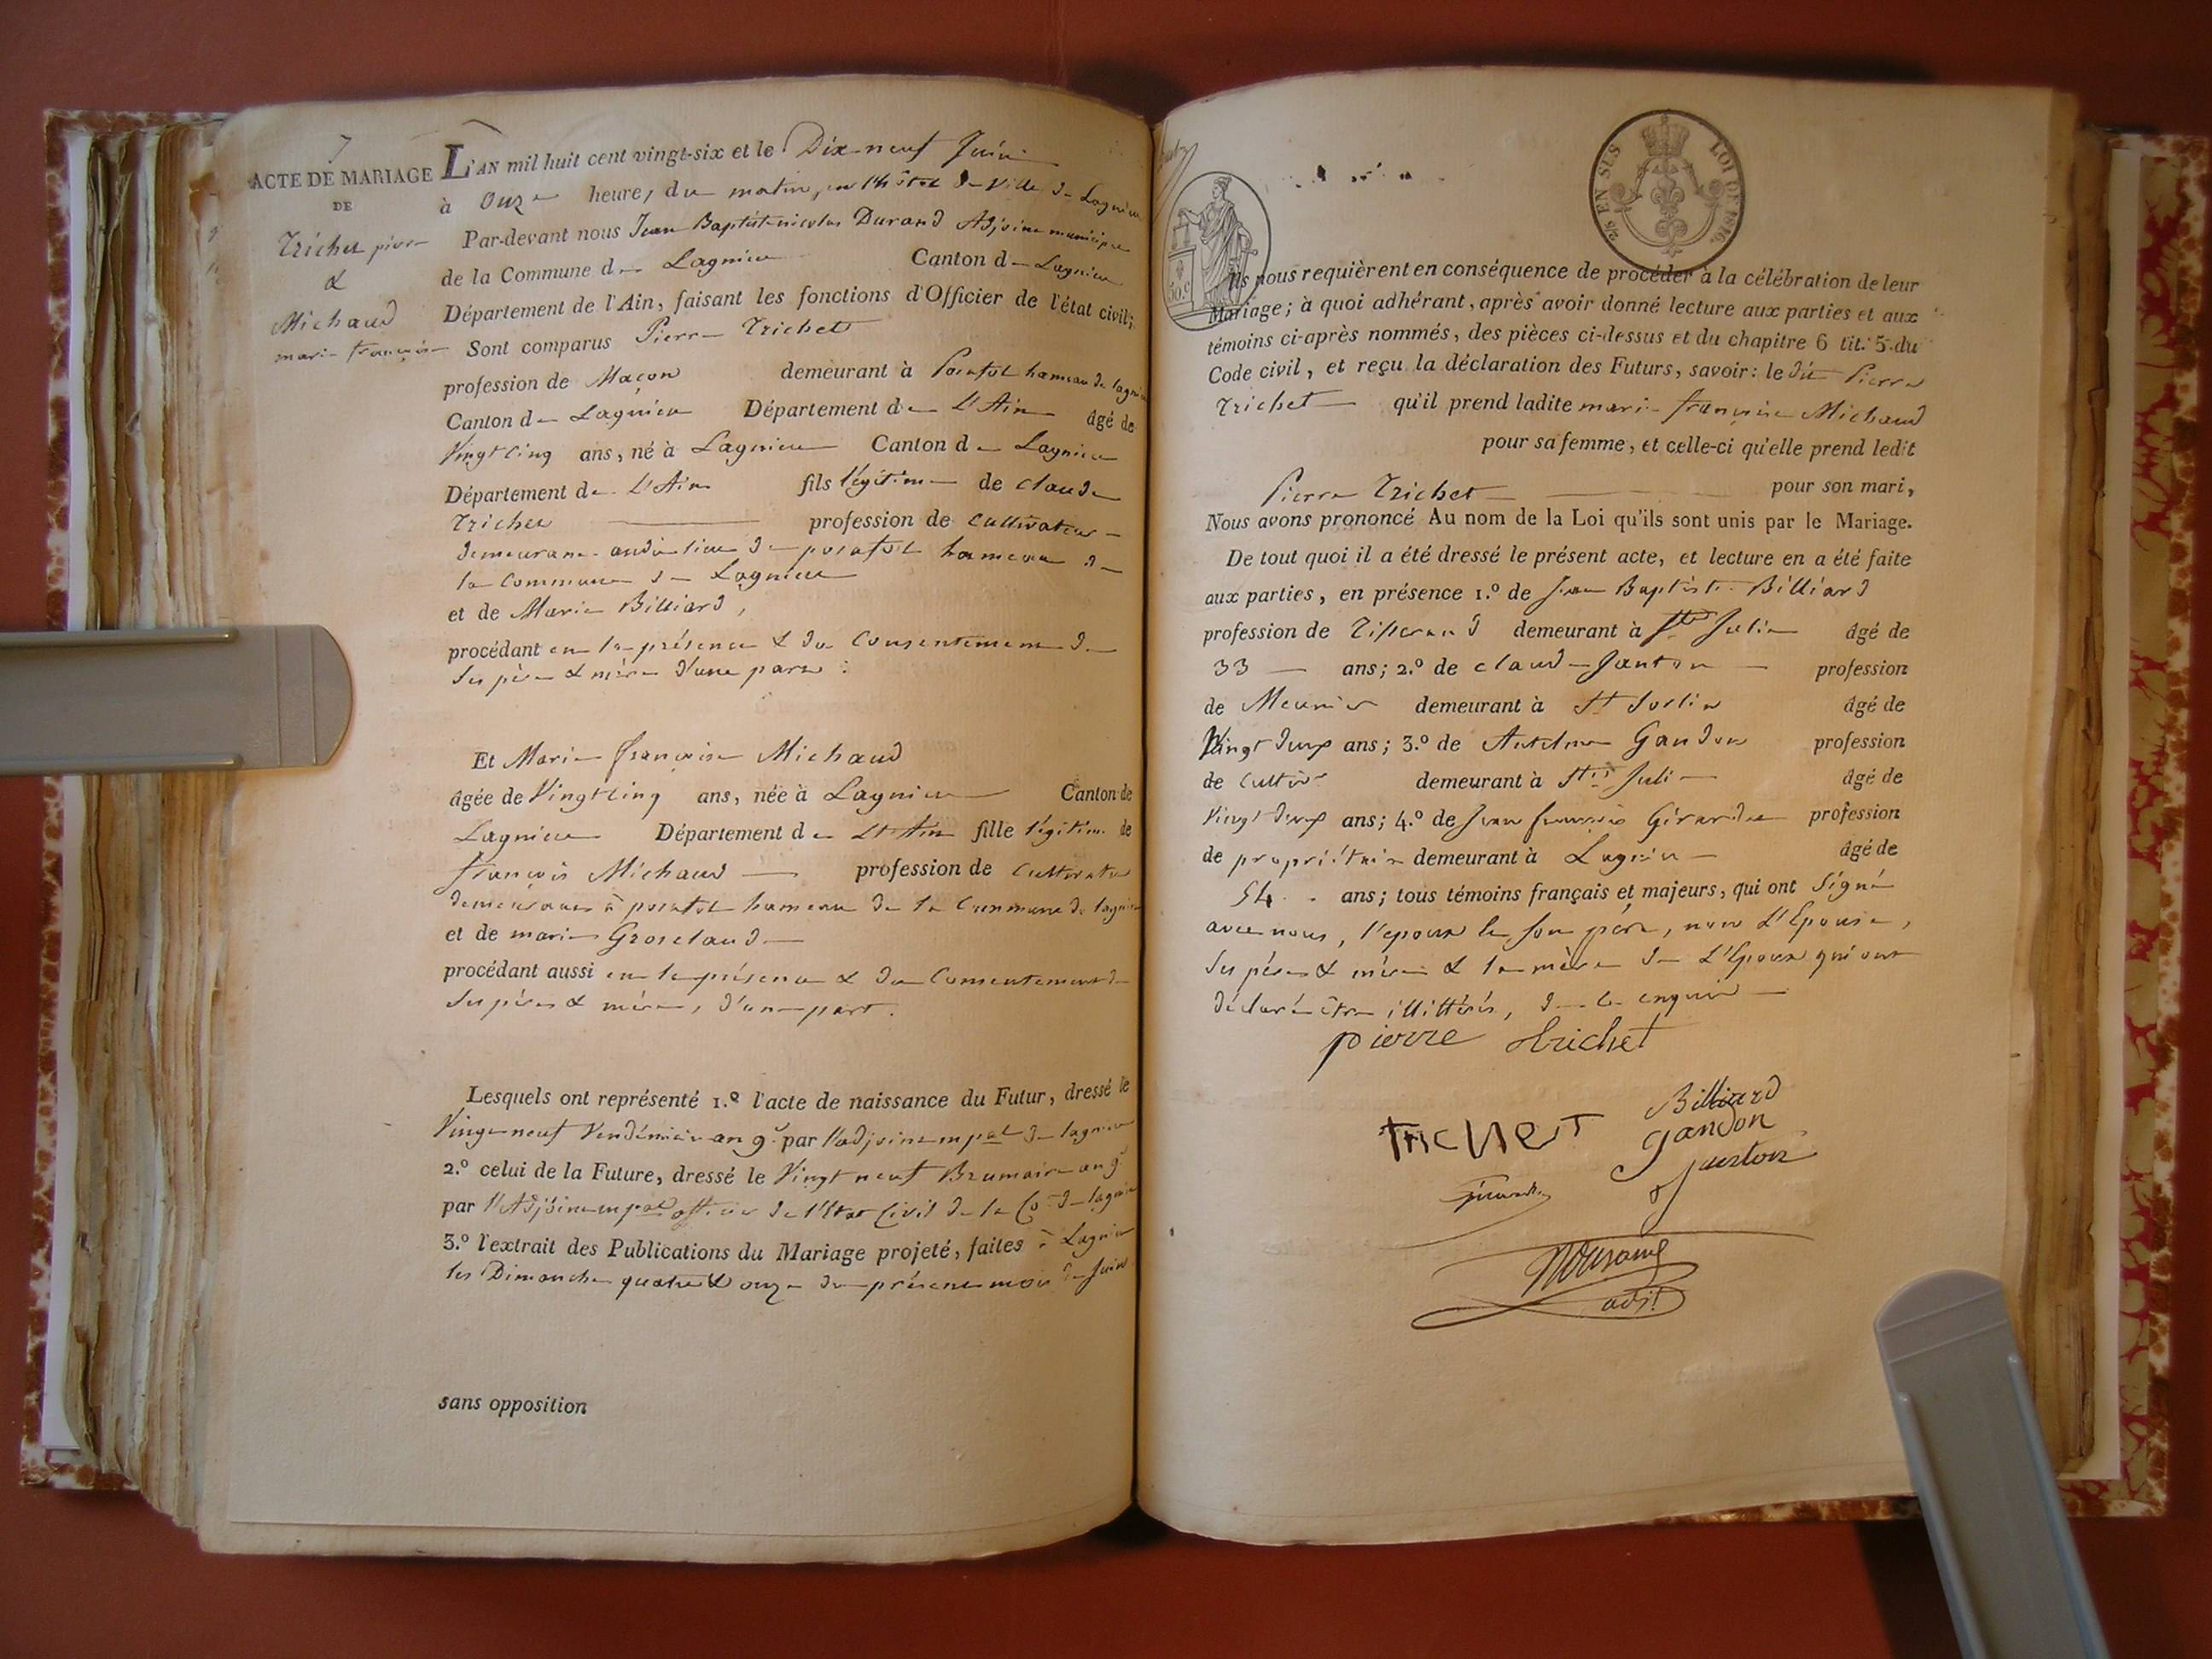 7
ACTE DE MARIAGE
DE
Trichet pierre
&
Michaud
marie françoise
L'AN mil huit cent vingt-six et le Dix-neuf Juin
à Onze heures du matin, en l'hôtel de Ville de Lagnieu
Par-devant nous Jean Baptiste nicolas Durand Adjoint municipal
de la Commune de Lagnieu Canton de Lagnieu
Département de l'Ain, faisant les fonctions d'Officier de l'état civil;
Sont comparus Pierre Trichet
profession de Maçon demeurant à hameau de lagnieu
Canton de Lagnieu Département de L'Ain âgé de
Vingt Cinq ans, né à Lagnieu Canton de Lagnieu
Département de L'Ain fils légitime de claude
Trichet profession de Cultivateur
demeurant audit lieu de hameau de
la Commune de Lagnieu
et de Marie Billiard,
procédant en la présence & du Consentement de
ses père & mère d'une part
Et Marie françoise Michaud
âgée de Vingt Cinq ans, née à Lagnieu Canton de
Lagnieu Département de L'Ain fille légitime de
françois Michaud profession de Cultivateur
demeurant à hameau de la Commune de lagnieu
et de marie Groselaud
procédant aussi en la présence & du Consentement de
ses père & mère, d'une part.
Lesquels ont représenté 1.º l'acte de naissance du Futur, dressé le
Vingt neuf Vendémiaire an 9 par l'adjoint mpal de lagnieu
2.º celui de la Future, dressé le Vingt neuf Brumaire an 9
par l'Adjoint mpal officier de l'Etat Civil de la Co de lagnieu
3.º l'extrait des Publications du Mariage projeté, faites à Lagnieu
les Dimanches quatre & onze du présent mois de Juin
sans opposition
50.c
2/5 EN SUS
LOI DE 1816.
Ils nous requièrent en conséquence de procéder à la célébration de leur
Mariage; à quoi adhérant, après avoir donné lecture aux parties et aux
témoins ci-après nommés, des pièces ci-dessus et du chapitre 6 tit. 5 du
Code civil, et reçu la déclaration des Futurs, savoir: le dit Pierre
Trichet qu'il prend ladite marie françoise Michaud
pour sa femme, et celle-ci qu'elle prend ledit
Pierre Trichet pour son mari,
Nous avons prononcé Au nom de la Loi qu'ils sont unis par le Mariage.
De tout quoi il a été dressé le présent acte, et lecture en a été faite
aux parties, en présence 1.º de Jean Baptiste Billiard
profession de Tisserand demeurant à Ste Julie âgé de
33 ans; 2.º de claude Janton profession
de Meunier demeurant à St Sorlin âgé de
Vingt deux ans; 3.º de Antelme Gandon profession
de Cultivr demeurant à Ste Julie âgé de
Vingt deux ans; 4.º de Jean françois Girardin profession
de propriétaire demeurant à Lagnieu âgé de
54 ans; tous témoins français et majeurs, qui ont Signé
avec nous, l'epoux & son père, non L'Epouse,
ses père & mère & la mère de L'Epoux qui ont
déclaré être illittérés, de ce enquis
pierre trichet
TRICHET
Billiard
gandon
Janton
Durand
adjt